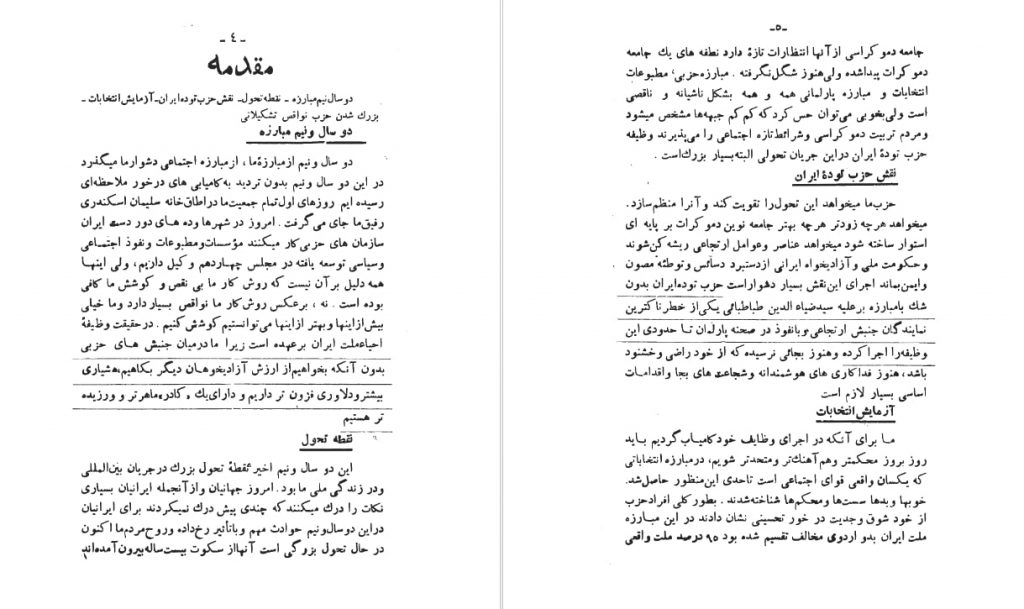 - ٤ -
مقدمه
دو سال نیم مبارزه ـ نقطه تحول ـ نقش حزب توده ایران ـ آزمایش انتخابات ـ
بزرگ شدن حزب نواقص تشکیلاتی
دو سال ونیم مبارزه
دو سال ونیم از مبارزهٔ ما ، از مبارزه اجتماعی دشوار ما میگذرد
در این دو سال ونیم بدون تردید به کامیابی های درخور ملاحظه‌ای
رسیده ایم روزهای اول تمام جمعیت ما در اطاق خانه سلیمان اسکندری
رفیق ما جای می‌گرفت . امروز در شهرها وده های دور دست ایران
سازمان های حزبی کار میکنند مؤسسات ومطبوعات و نفوذ اجتماعی
وسیاسی توسعه یافته در مجلس چهاردهم و کیل داریم ، ولی اینها
همه دلیل بر آن نیست که روش کار ما بی نقص و کوشش ما کافی
بوده است . نه ، برعکس روش کار ما نواقص بسیار دارد وما خیلی
بیش از اینها وبهتر از اینها می‌توانستیم کوشش کنیم . در حقیقت وظیفهٔ
احیاء ملت ایران برعهده است زیرا ما در میان جنبش های حزبی
بدون آنکه بخواهیم از ارزش آزادیخوهان دیگر بکاهیم هشیاری
بیشتر ودلاوری فزون تر داریم و دارای یك و کادره ماهر تر و ورزیده
تر هستیم
نقطه تحول
این دو سال ونیم اخیر نقطهٔ تحول بزرك در جریان بین‌المللی
ودر زندگی ملی ما بود . امروز جهانیان واز آنجمله ایرانیان بسیاری
نکات را درك میکنند که چندی پیش درك نمیکردند برای ایرانیان
در این دو سال ونیم حوادث مهم وبا تأثیر رخ داده وروح مردم ما اکنون
در حال تحول بزرگی است آنها از سکوت بیست ساله بیرون آمده اند
-٥-
جامعه دمو کراسی از آنها انتظارات تازهٔ دارد نطفه های یك جامعه
دمو کرات پیدا شده ولی هنوز شکل نگرفته . مبارزه حزبی، مطبوعات
انتخابات و مبارزه پارلمانی همه و همه بشکل ناشیانه و ناقصی
است ولی بخوبی می‌توان حس کرد که کم کم جبهه‌ها مشخص میشود
ومردم تربیت دمو کراسی وشرائط تازه اجتماعی را می‌پذیرند وظیفه
حزب تودهٔ ایران در این جریان تحولی البته بسیار بزرك است .
نقش حزب تودهٔ ایران
حزب ما میخواهد این تحول را تقویت کند و آنرا منظم سازد.
میخواهد هرچه زودتر هرچه بهتر جامعه نوین دمو کرات بر پایه ای
استوار ساخته شود میخواهد عناصر وعوامل ارتجاعی ریشه کن شوند
وحکومت ملی و آزادیخواه ایرانی از دستبرد دسائس وتوطئه مصون
وایمن بماند اجرای این نقش بسیار دشوار است حزب توده ایران بدون
شك با مبارزه برعلیه سید ضیاء الدین طباطبائی یکی از خطرناکترین
نمایندگان جنبش ارتجاعی وبا نفوذ در صحنه پارلمان تا حدودی این
وظیفه را اجرا کرده وهنوز بجائی نرسیده که از خود راضی وخشنود
باشد، هنوز فداکاری های هوشمندانه وشجاعت های بجا واقدامات
اساسی بسیار لازم است
آزمایش انتخابات
ما برای آنکه در اجرای وظایف خود کامیاب گردیم باید
روز بروز محکمتر وهم آهنك‌تر ومتحدتر شویم، در مبارزه انتخاباتی
که یکسان واقعی قوای اجتماعی است تاحدی این منظور حاصل شد.
خوبها وبدها سست‌ها ومحکم‌ها شناخته شدند . بطور کلی افراد حزب
از خود شوق وجدیت در خور تحسینی نشان دادند در این مبارزه
ملت ایران بدو اردوی مخالف تقسیم شده بود ٩٥ درصد ملت واقعی